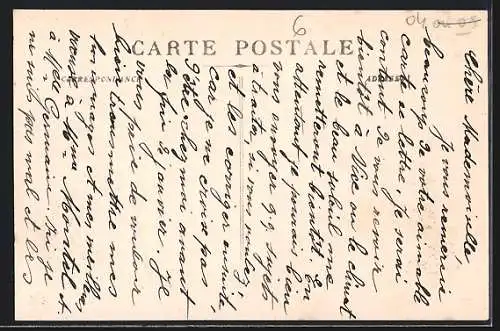 04 ou 05
6
CARTE POSTALE
CORRESPONDANCE
ADRESSE
Chère Mademoiselle,
Je vous remercie
beaucoup de votre aimable
carte et lettre, je serai
contente de vous revoir
bientôt à Nice ou le climat
et le beau soleil me
remettront bientôt. En
attendant je pourrai bien
vous envoyer q.q. sujets
à traiter, si vous voulez,
et les corriger ensuite
car je ne crois pas
être chez moi avant
la fin Janvier. Je
vous prie de vouloir
bien transmettre mes
hommages et mes meilleurs
vœux à Mme Montel et
à Melle Germaine. Ici je
ne suis pas mal et les